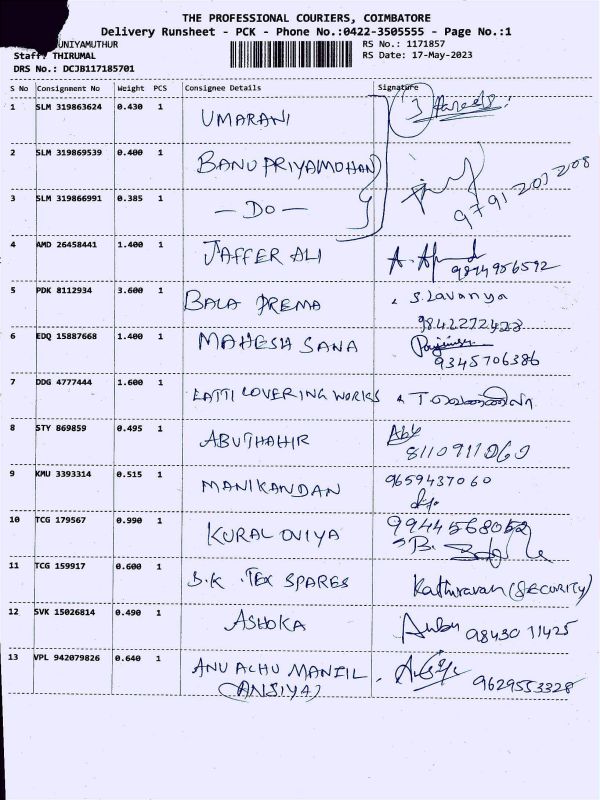 THE PROFESSIONAL COURIERS, COIMBATORE
Delivery Runsheet - PCK - Phone No.:0422-3505555 - Page No.:1
UNIYAMUTHUR
RS No.: 1171857
Staff: THIRUMAL
RS Date: 17-May-2023
DRS No.: DCJB117185701
S No Consignment No Weight PCS Consignee Details Signature
1 SLM 319863624 0.430 1 UMARANI
2 SLM 319869539 0.400 1 BANU PRIYAMOHAN
3 SLM 319866991 0.385 1 - DO - 9791202208
4 AMD 26458441 1.400 1 JAFFER ALI
9874956592
5 PDK 8112934 3.600 1 BALA PREMA S. Lavanya
9842272423
6 EDQ 15887668 1.400 1 MAHESH SANA
9345706386
7 DDG 4777444 1.600 1 LATTI COVERING WORKS
8 STY 869859 0.495 1 ABUTHAHIR Abu
8110911060
9 KMU 3393314 0.515 1 MANIKANDAN 9659437060
10 TCG 179567 0.990 1 KURAL OVIYA 9944568052
11 TCG 159917 0.600 1 S.K. TEX SPARES Kathiravan (SECURITY)
12 SVK 15026814 0.490 1 ASHOKA Anbu 98430 11425
13 VPL 942079826 0.640 1 ANU ACHU MANZIL
(ANSIYA) 9629553328